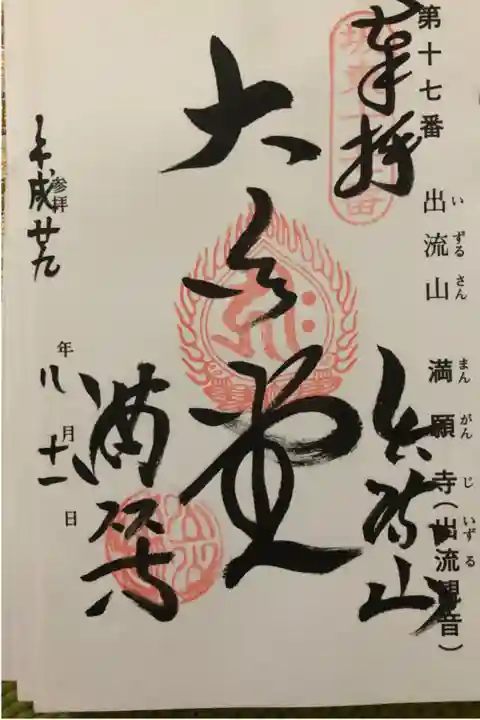 第十七番 出流山 満願寺(出流観音)
いずるさん まんがんじ いずる
奉拝
坂東十七番
出流山
大悲堂
満願寺
参拝
平成廿九年八月十一日